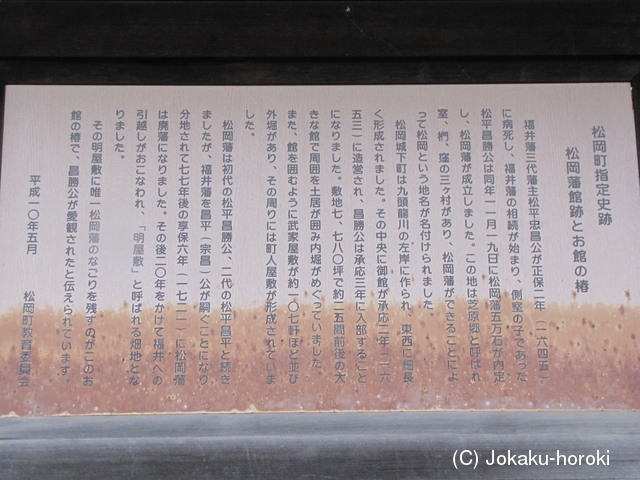 松岡町指定史跡
松岡藩館跡とお館の椿
福井藩三代藩主松平忠昌公が正保二年（一六四五）
に病死し、福井藩の相続が始まり、側室の子であった
松平昌勝公は同年一一月一九日に松岡藩五万石が内定
し、松岡藩が成立しました。この地は芝原郷と呼ばれ
室、椚、窪の三ヶ村があり、松岡藩ができることによ
って松岡という地名が名付けられました
松岡城下町は九頭龍川の左岸に作られ、東西に細長
く形成されました。その中央に御館が承応二年（一六
五三）に造営され、昌勝公は承応三年に入部すること
になりました。敷地七、七八〇坪で約一五間前後の大
きな館で周囲を土居が囲み内堀がめぐっていました
また、館を囲むように武家屋敷が約一〇七軒ほど並び
外堀があり、その周りには町人屋敷が形成されていま
した。
松岡藩は初代の松平昌勝公、二代の松平昌平と続き
ましたが、福井藩を昌平（宗昌）公が嗣ぐことになり
分地されて七七年後の享保六年（一七二一）に松岡藩
は廃藩になりました。その後二〇年をかけて福井への
引越しがおこなわれ、「明屋敷」と呼ばれる畑地とな
りました。
その明屋敷に唯一松岡藩のなごりを残すのがこのお
館の椿で、昌勝公が愛観されたと伝えられています
平成一〇年五月
松岡町教育委員会
(C) Jokaku-horoki